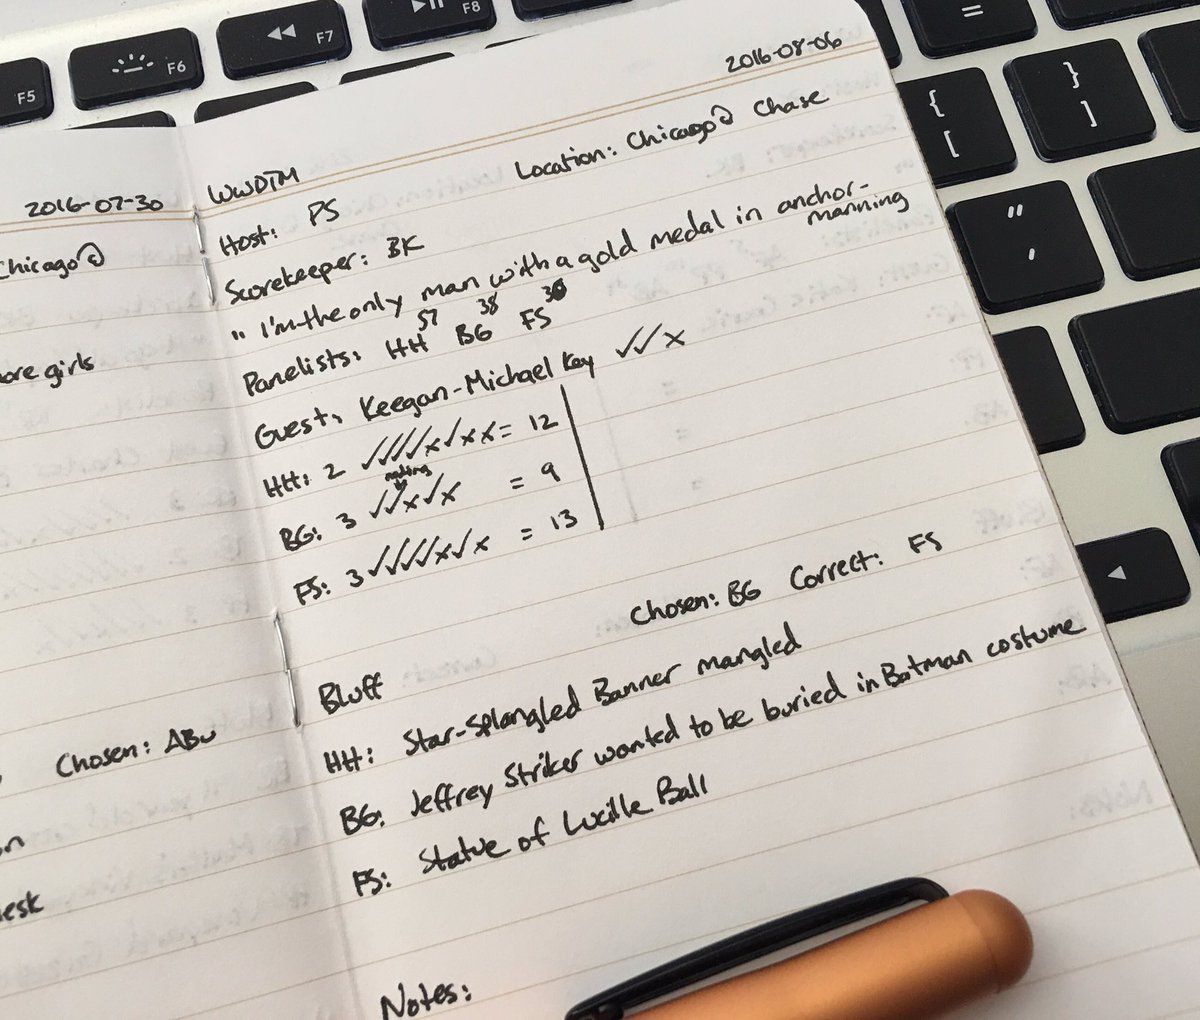 F5
F6
F7
F8
=
{
[
}
]
"
'
2016-07-30
Chicago@
ore girls
Chosen: ABu
on
esk
2016-08-06
WWDTM
Location: Chicago@ Chase
Host: PS
Scorekeeper: BK
" I'm the only man with a gold medal in anchor-
manning
57 38 36
Panelists: HH BG FS
Guest: Keegan-Michael Key ✓✓x
HH: 2 ✓✓✓✓x✓xx = 12
BG: 3 ✓✓x✓x = 9
FS: 3 ✓✓✓✓x✓x = 13
Chosen: BG Correct: FS
Bluff
HH: Star-Splangled Banner mangled
BG: Jeffrey Striker wanted to be buried in Batman costume
FS: Statue of Lucille Ball
Notes: